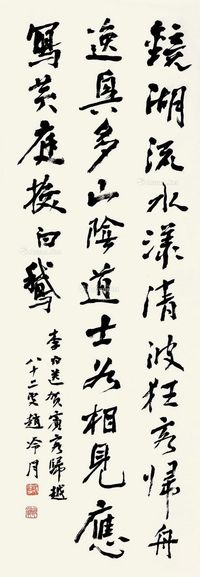 鏡湖流水漾清波狂客歸舟
逸興多山陰道士如相見應
寫黃庭換白鵝
李白送賀賓客歸越
八十二叟趙冷月